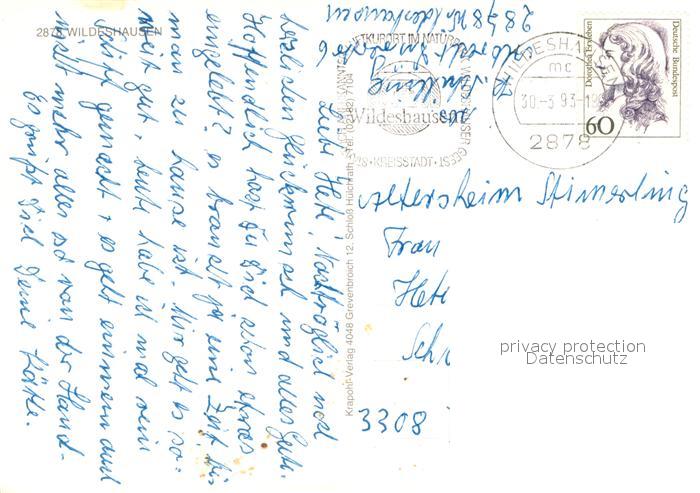 2878 WILDESHAUSEN
Liebe Hete! Nachträglich noch
herzlichen Glückwunsch und alles Gute.
Hoffentlich hast Du Dich schon etwas
eingelebt? es braucht ja eine Zeit, bis
man zu hause ist. Mir geht es so-
weit gut, heute habe ich mal rein
Schiff gemacht + es geht einem auch
nicht mehr alles so von der Hand-
Es grüßt Dich Deine Käthe.
Krapohl-Verlag 4048 Grevenbroich 12, Schloß Hülchrath, Tel. (02182) 7104
2878 Wildeshausen
LUFTKURORT IM NATURPARK WILDESHAUSER GEEST
Wildeshausen
KREISSTADT
WILDESHAUSEN
mc
30.-3.93-19
2878
Dorothea Erxleben
Deutsche Bundespost
60
Altersheim Stimerling
Frau
Hete
Sch
3308
privacy protection
Datenschutz